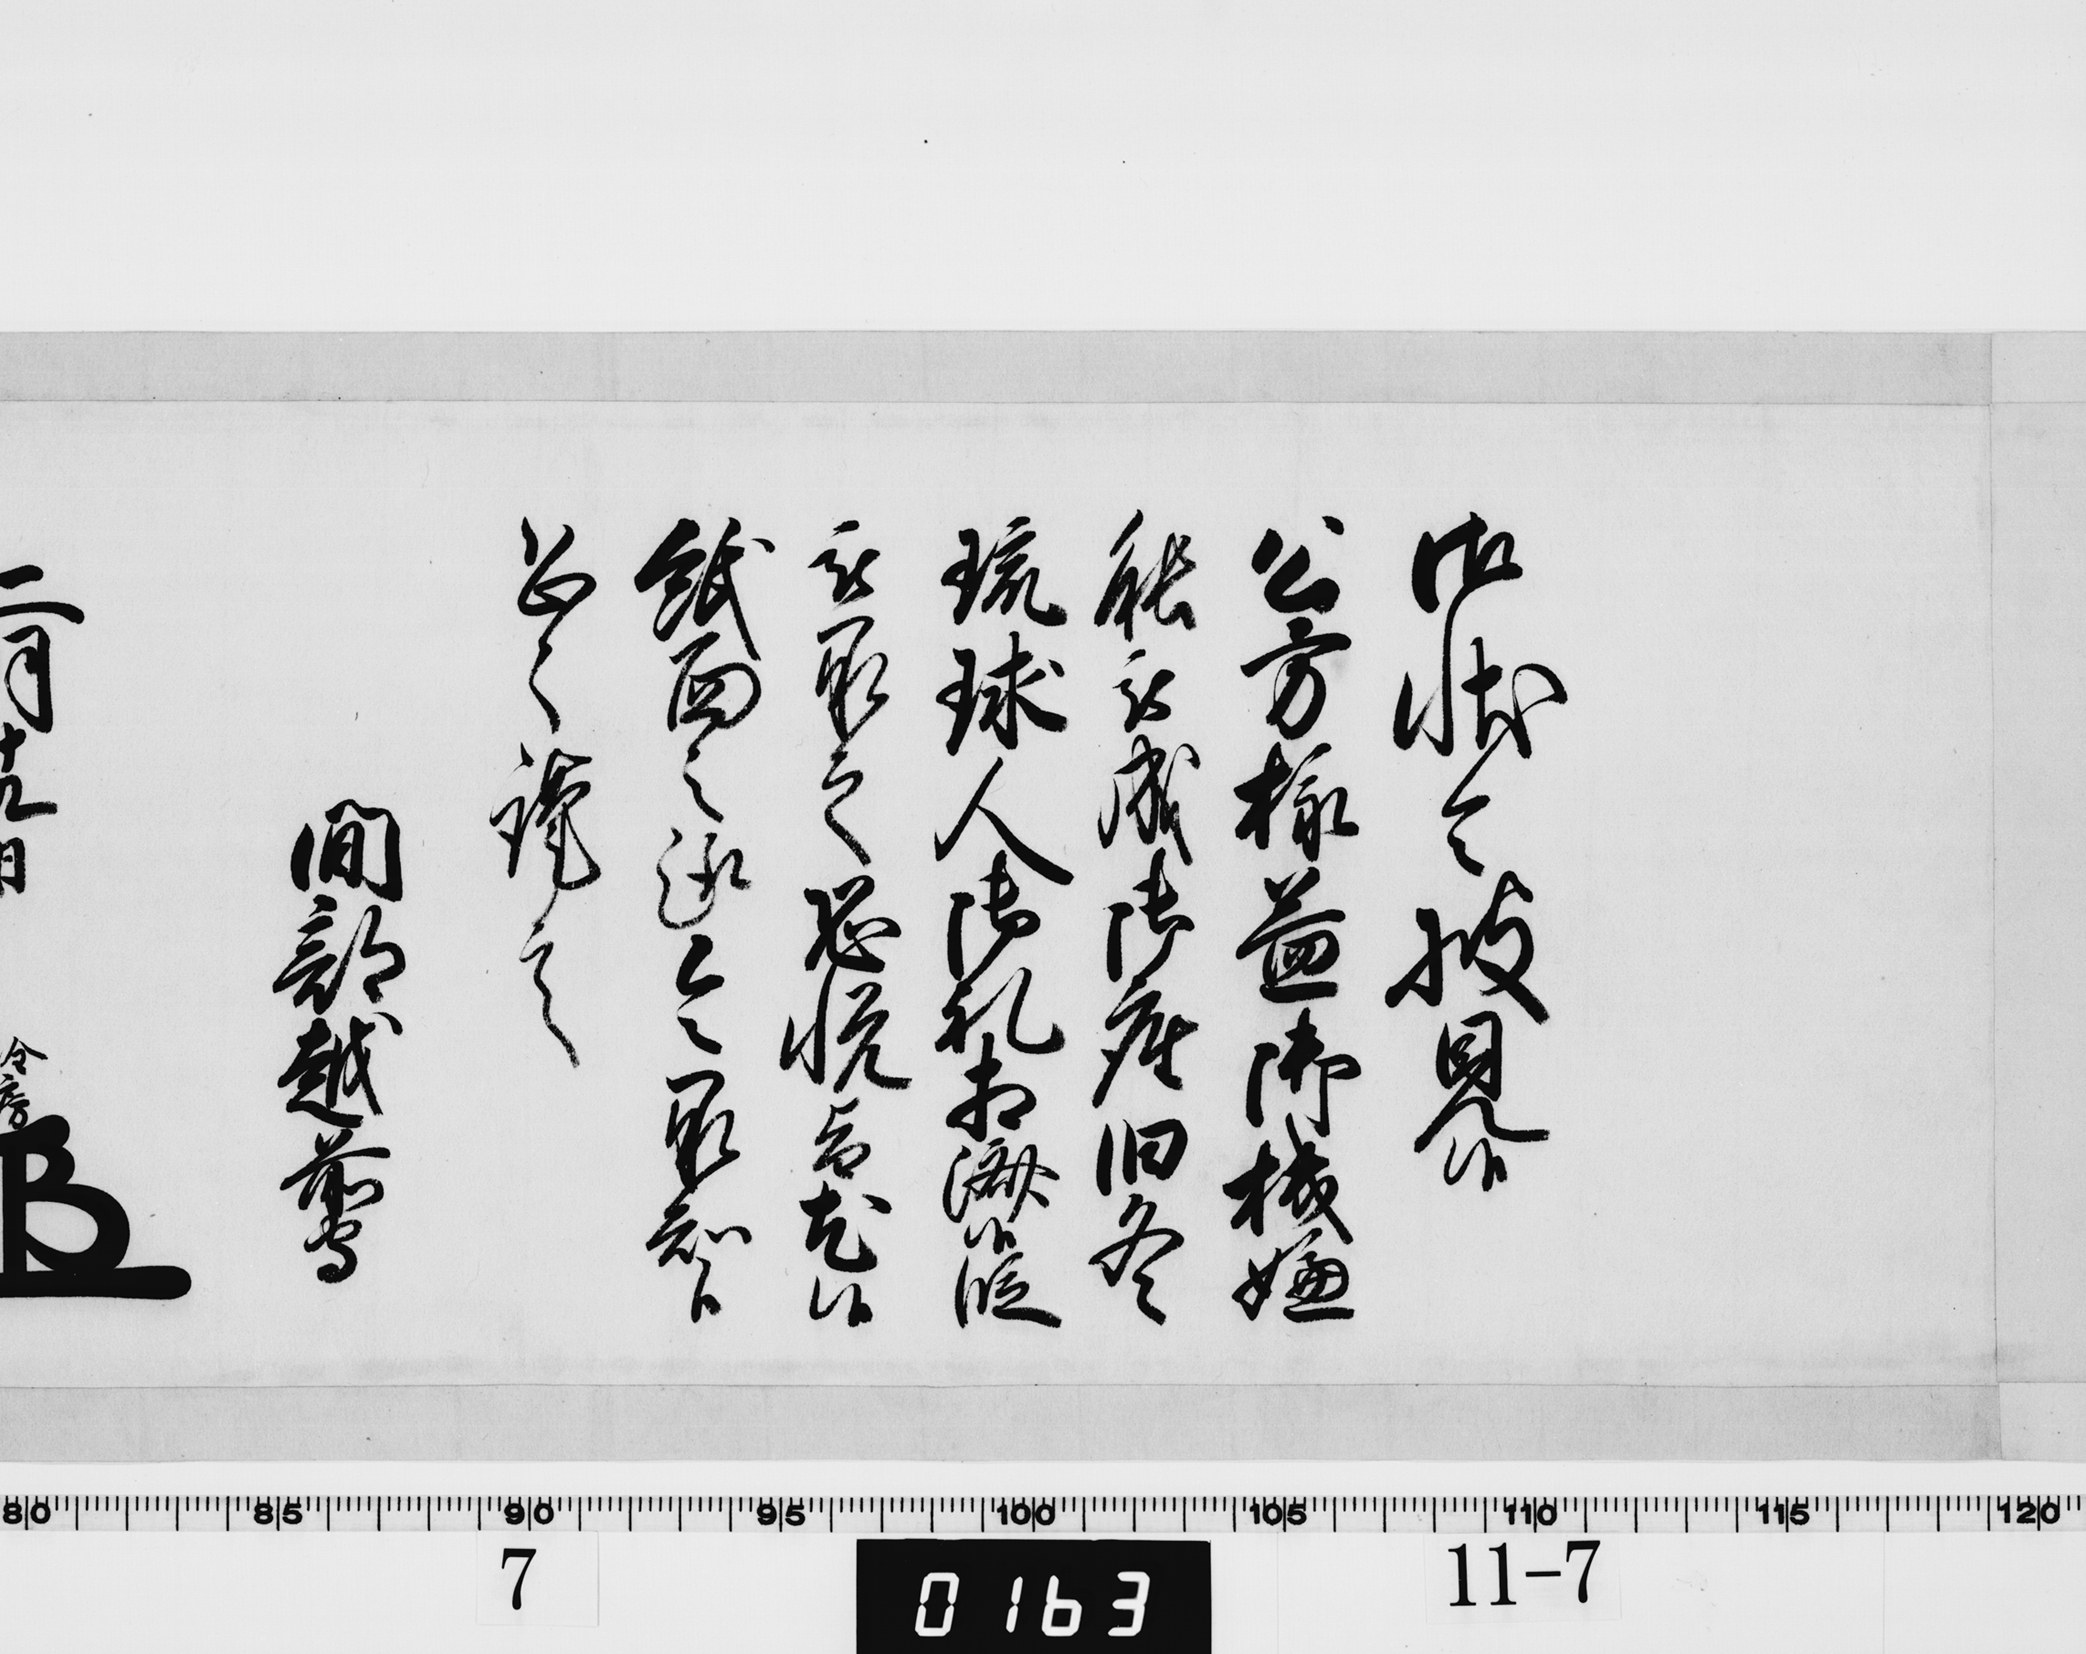 御状令披見候
公方様益御機嫌
能被成御座旧冬
琉球人御礼相済候段
被承之恐悦旨尤候
紙面之趣令承知候
恐々謹言
間部越前守
二月十九日
詮房
80 85 90 95 100 105 110 115 120
7
0163
11-7